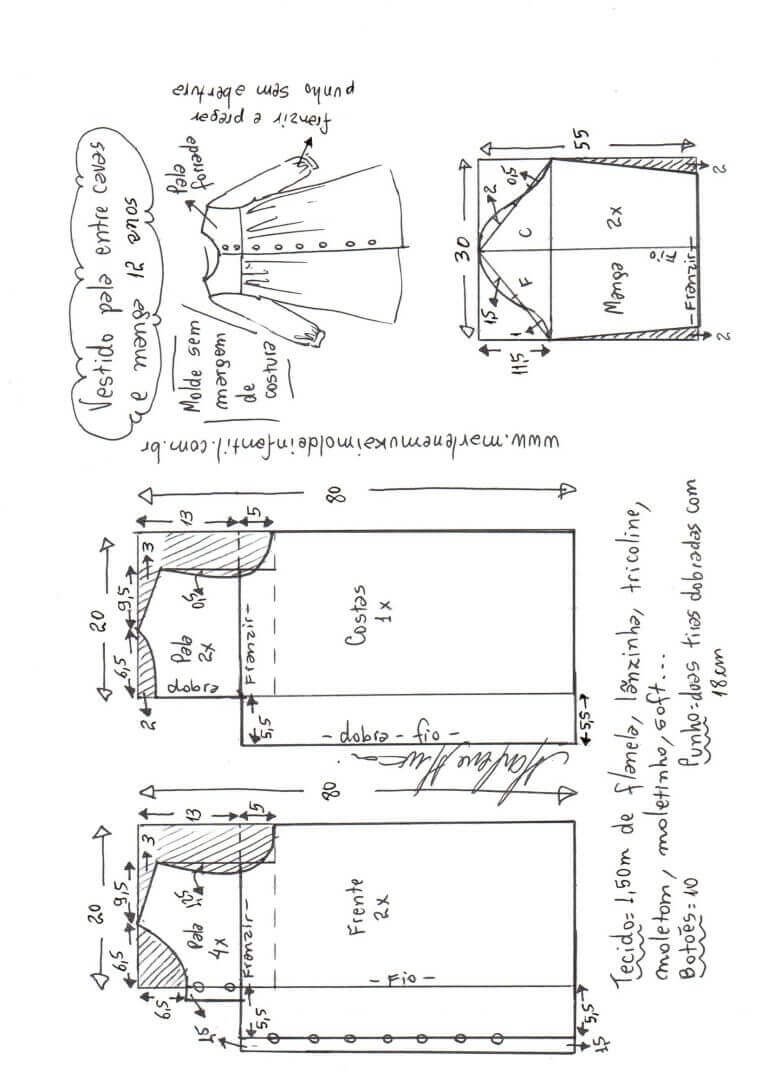 Vestido pala entre cavas
e mangas 12 anos
Molde sem
margem
de
costura
Pala
forrada
franzir e pregar
punho sem abertura
www.marlenemukaimoldeinfantil.com.br
30
55
11,5
1,5
1
F
C
2
0,5
Manga
2x
Fio
-Franzir-
2
2
20
6,5
9,5
3
13
5
80
2
dobra
Pala
2x
0,5
Franzir-
5,5
Costas
1x
- dobra - fio -
5,5
20
6,5
9,5
3
13
5
80
6,5
Pala
4x
1,5
1,5
Franzir-
5,5
Frente
2x
- Fio -
5,5
1,5
Tecido= 1,50m de flanela, lãnzinha, tricoline,
moletom, moletinho, soft...
Botões= 10
Punho= duas tiras dobradas com
18cm